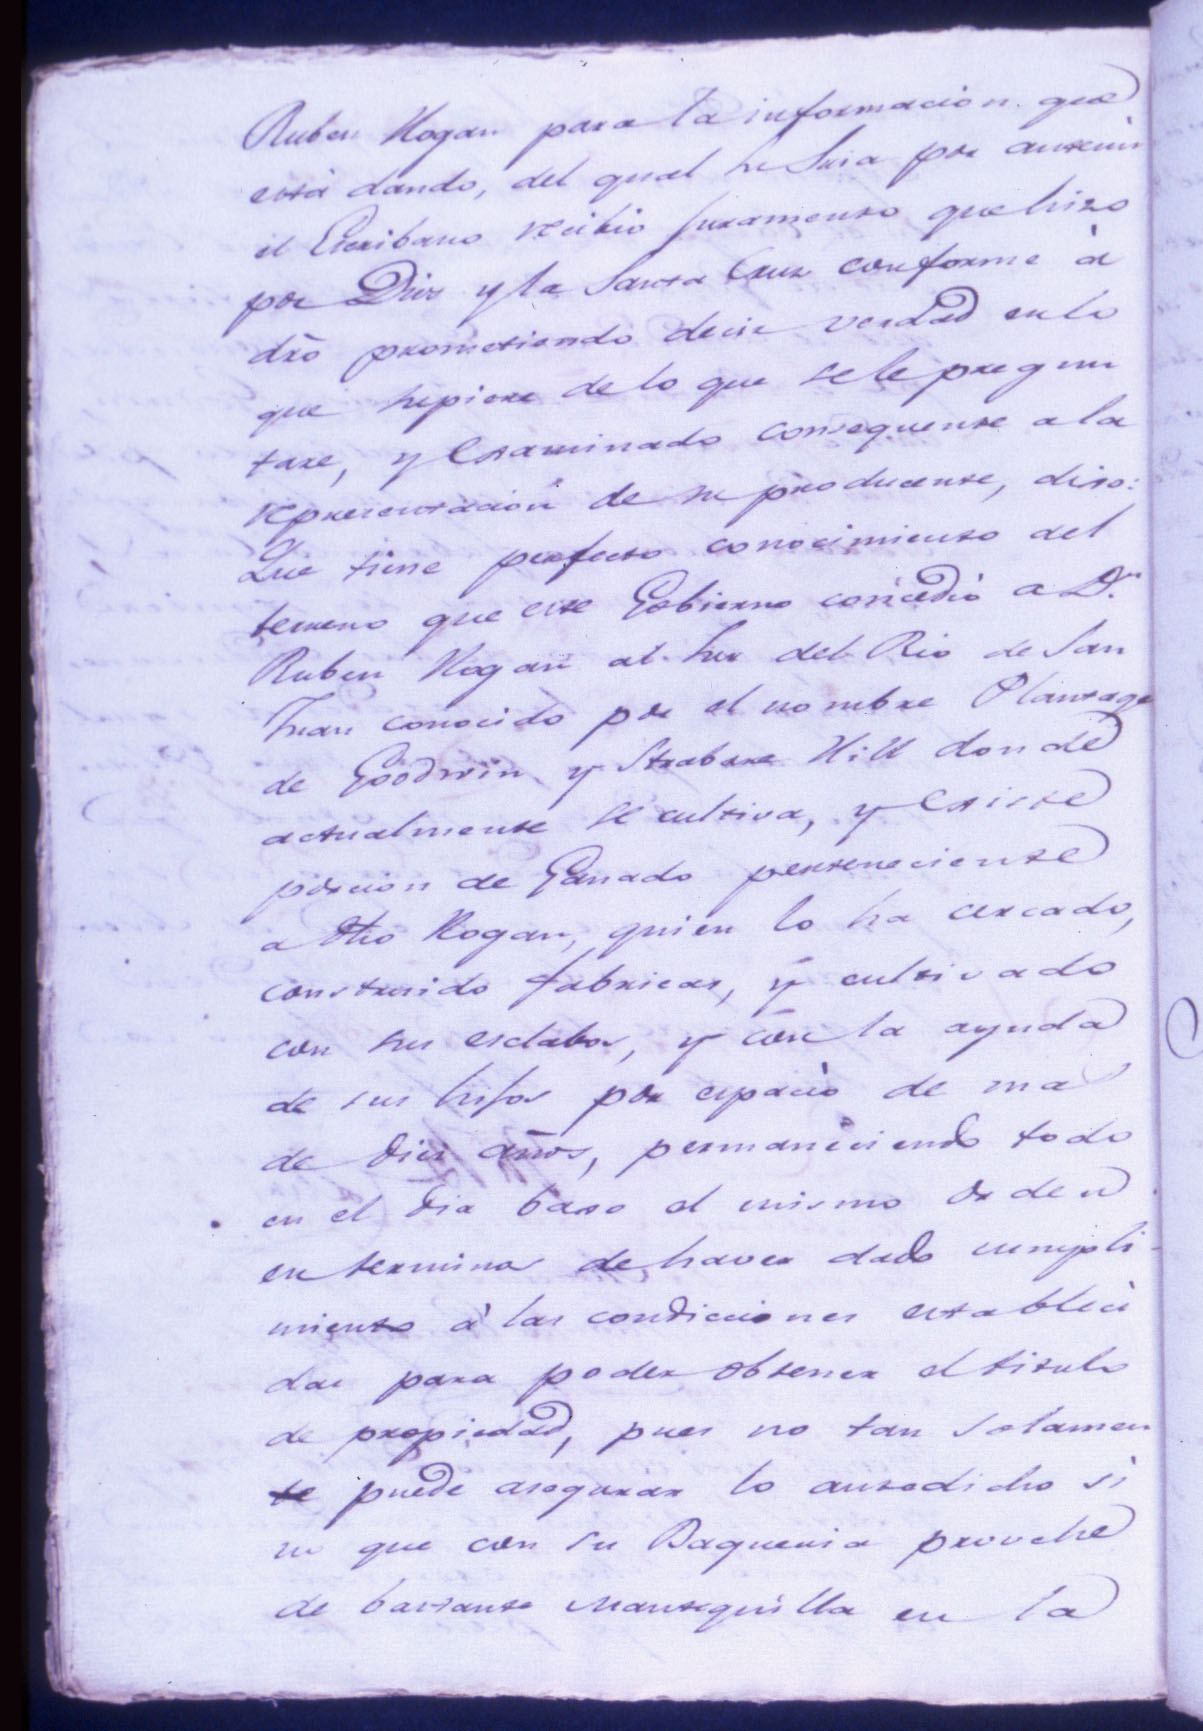 Ruben Hogan para la informacion que
está dando, del qual su Sria por antemi
el Escribano recibio juramento que hizo
por Dios y la Santa Cruz conforme à
dr̃o prometiendo decir verdad en lo
que supiere de lo que se le pregun
tare, y Examinado consequente a la
representacion de su producente, dixo:
Que tiene perfecto conocimiento del
terreno que este Gobierno concedió a Dn.
Ruben Hogan al Sur del Rio de San
Juan conocido por el nombre Plantage
de Goodwin y Strabane Hill donde
actualmente se cultiva, y Existe
porcion de Ganado perteneciente
a dho Hogan, quien lo ha cercado,
construido fabricas, y cultivado
con sus esclabos, y con la ayuda
de sus hijos por espacio de mas
de diez años, permaneciendo todo
en el dia baxo el mismo orden
en terminos de haver dado cumpli-
miento à las condiciones estableci
das para poder obtener el titulo
de propiedad, pues no tan solamen
te puede asegurar lo antedicho si
no que con su Baqueria provehe
de bastante Mantequilla en la